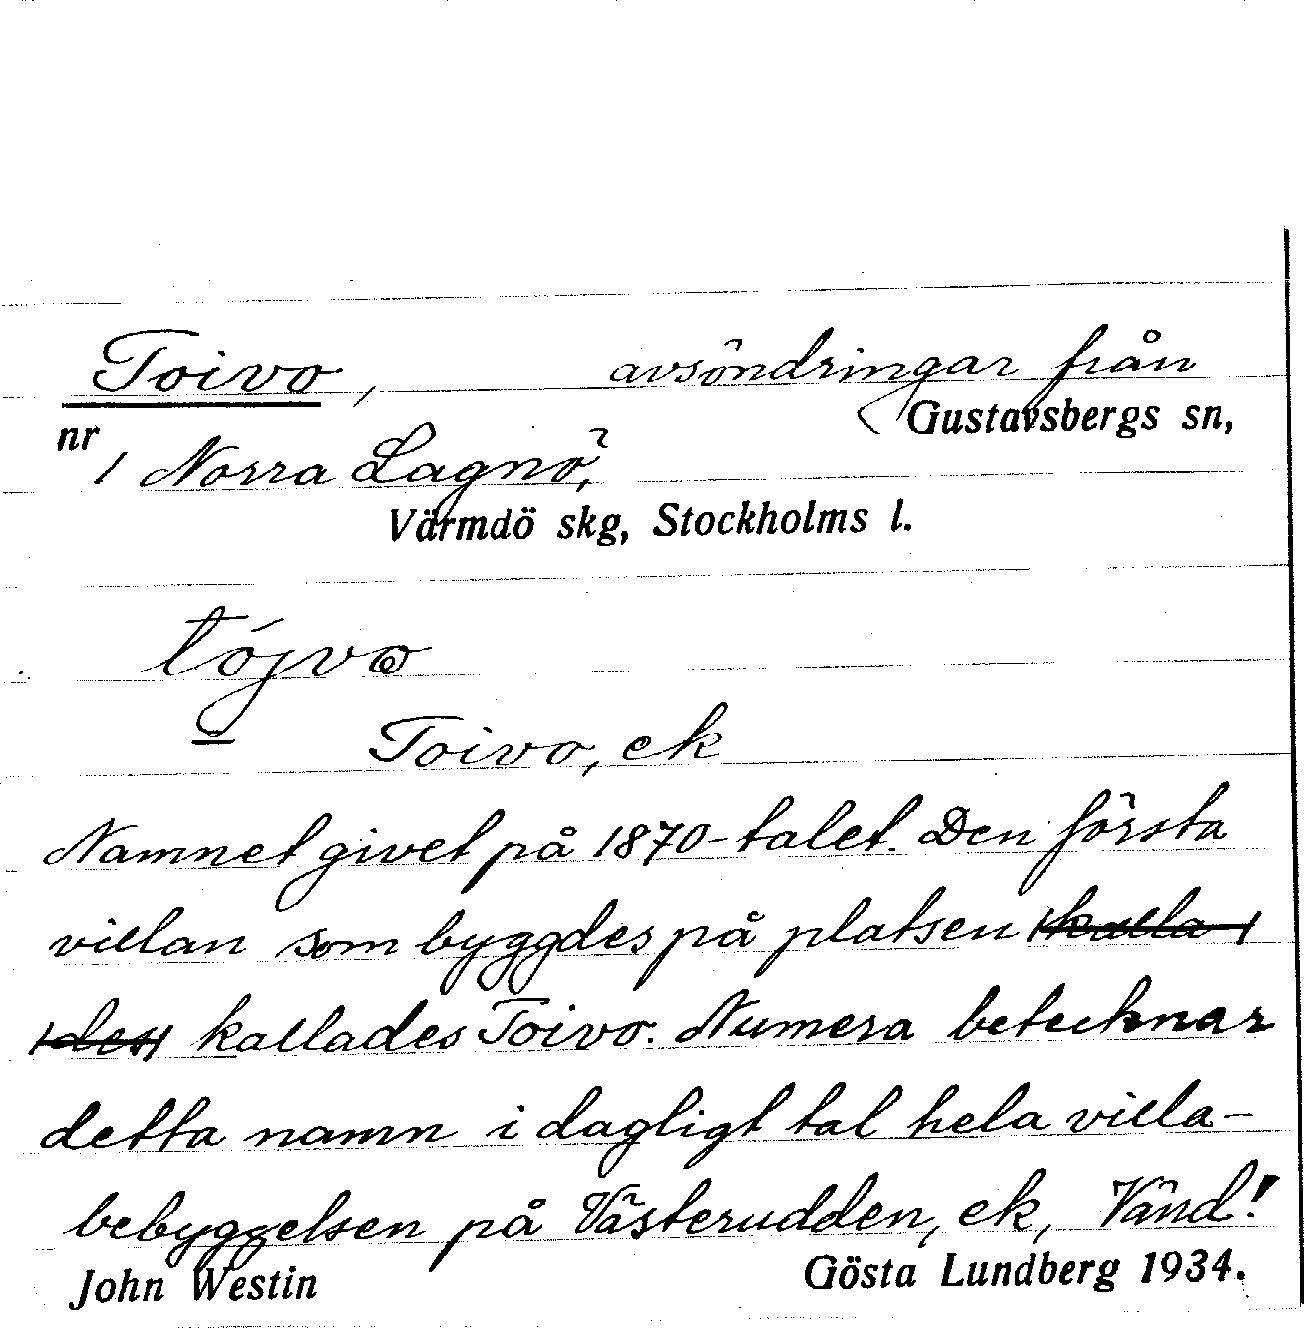 Toivo, avsöndringar från
Gustavsbergs sn,
nr 1 Norra Lagnö,
Värmdö skg, Stockholms l.
tójvω
Toivo, ek
Namnet givet på 1870-talet. Den första
villan som byggdes på platsen kalla
des kallades Toivo. Numera betecknar
detta namn i dagligt tal hela villa-
bebyggelsen på Västerudden, ek, Vänd!
John Westin Gösta Lundberg 1934.